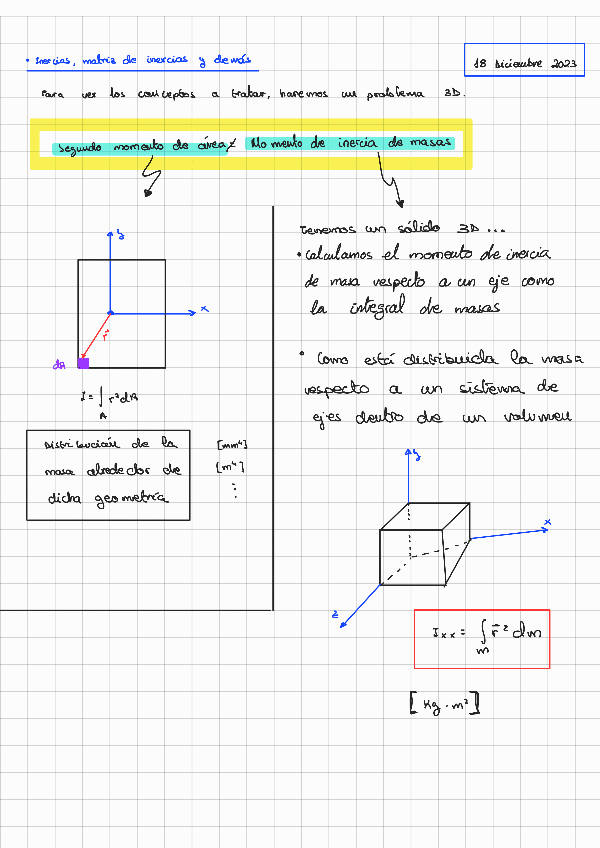 • Inercias, matriz de inercias y demás
18 Diciembre 2023
Para ver los conceptos a tratar, haremos un problema 3D.
Segundo momento de área ≠ Momento de inercia de masas
y
x
r⃗
dA
I = ∫ r² dA
A
Distribución de la
masa alrededor de
dicha geometría
[mm⁴]
[m⁴]
⋮
Tenemos un sólido 3D ...
• Calculamos el momento de inercia
de masa respecto a un eje como
la integral de masas
• Como está distribuida la masa
respecto a un sistema de
ejes dentro de un volumen
y
x
z
Ixx = ∫ r⃗² dm
m
[Kg · m²]